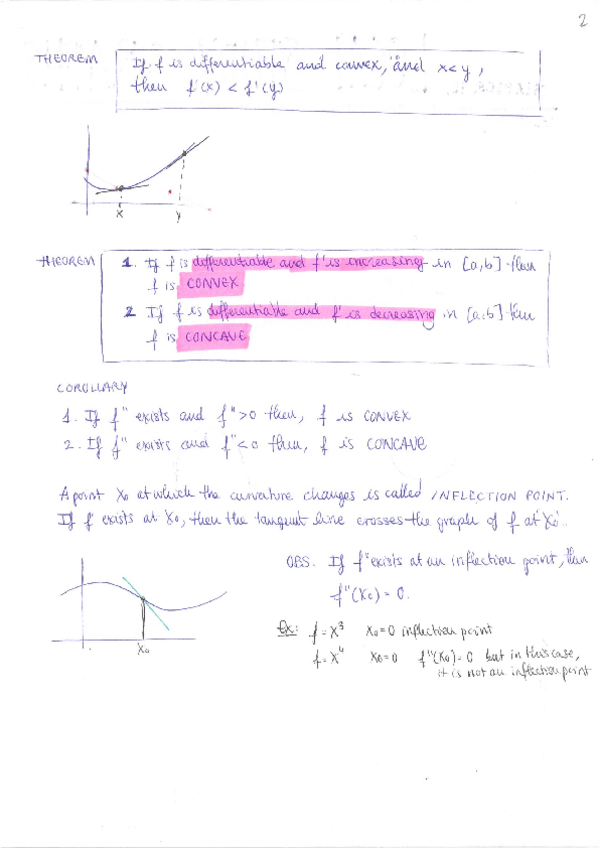 2
THEOREM
If f is differentiable and convex, and x < y,
then f'(x) < f'(y)
x y
THEOREM
1. If f is differentiable and f' is increasing in [a,b] then
f is CONVEX
2 If f is differentiable and f' is decreasing in [a,b] then
f is CONCAVE
COROLLARY
1. If f'' exists and f'' > 0 then, f is CONVEX
2. If f'' exists and f'' < 0 then, f is CONCAVE
A point x₀ at which the curvature changes is called INFLECTION POINT.
If f' exists at x₀, then the tangent line crosses the graph of f at x₀.
OBS. If f'' exists at an inflection point, then
f''(x₀) = 0.
x₀
Ex: f = x³ x₀ = 0 inflection point
f = x⁴ x₀ = 0 f''(x₀) = 0 but in this case,
it is not an inflection point